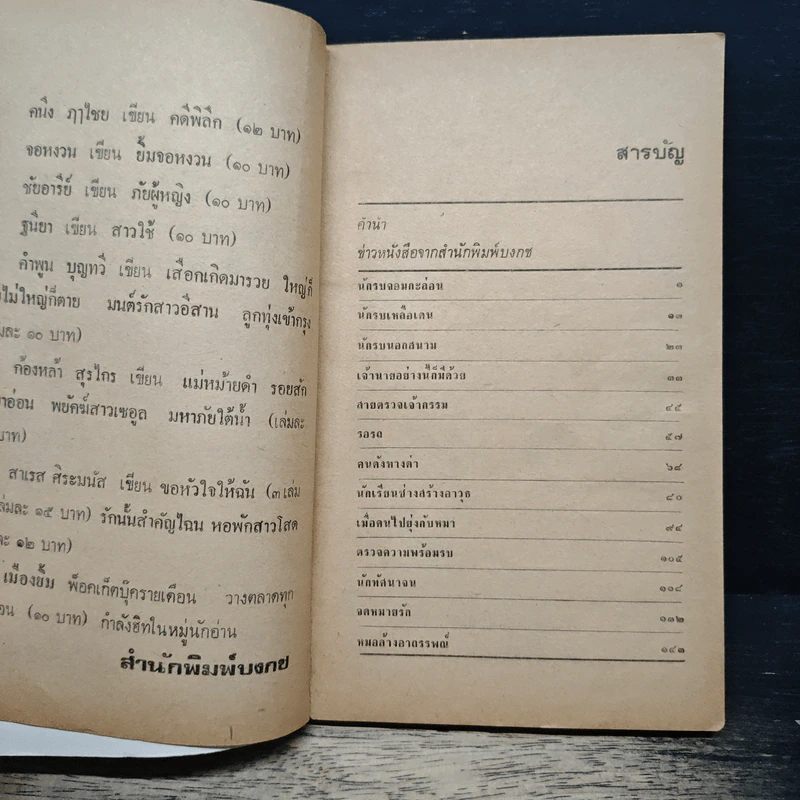 คนึง ฦๅไชย เขียน คดีพิลึก (๑๒ บาท)
จอหงวน เขียน ยิ้มจอหงวน (๑๐ บาท)
ชัยอารีย์ เขียน ภัยผู้หญิง (๑๐ บาท)
ฐนิยา เขียน สาวใช้ (๑๐ บาท)
คำพูน บุญทวี เขียน เสือกเกิดมารวย ใหญ่ก็
ไม่ใหญ่ก็ตาย มนต์รักสาวอีสาน ลูกทุ่งเข้ากรุง
ละ ๑๐ บาท)
ก้องหล้า สุรไกร เขียน แม่หม้ายดำ รอยสัก
อ่อน พยัคฆ์สาวเซอูล มหาภัยใต้น้ำ (เล่มละ
บาท)
สาเรส ศิระมนัส เขียน ขอหัวใจให้ฉัน (๓ เล่ม
ละ ๑๕ บาท) รักนั้นสำคัญไฉน หอพักสาวโสด
ละ ๑๒ บาท)
เมืองยิ้ม พ็อคเก็ตบุ๊ครายเดือน วางตลาดทุก
(๑๐ บาท) กำลังฮิทในหมู่นักอ่าน
สำนักพิมพ์บงกช
สารบัญ
คำนำ
ข่าวหนังสือจากสำนักพิมพ์บงกช
นักรบจอมกะล่อน ๑
นักรบเหลือเดน ๑๗
นักรบนอกสนาม ๒๓
เจ้านายอย่างนี้ก็มีด้วย ๓๓
สายตรวจเจ้ากรรม ๔๕
รอรถ ๕๗
คนดังทางด่า ๖๘
นักเรียนช่างสร้างอาวุธ ๘๐
เมื่อคนไปยุ่งกับหมา ๙๔
ตรวจความพร้อมรบ ๑๐๕
นักพัฒนาจน ๑๑๘
จดหมายรัก ๑๓๒
หมอล้างอาถรรพณ์ ๑๔๓